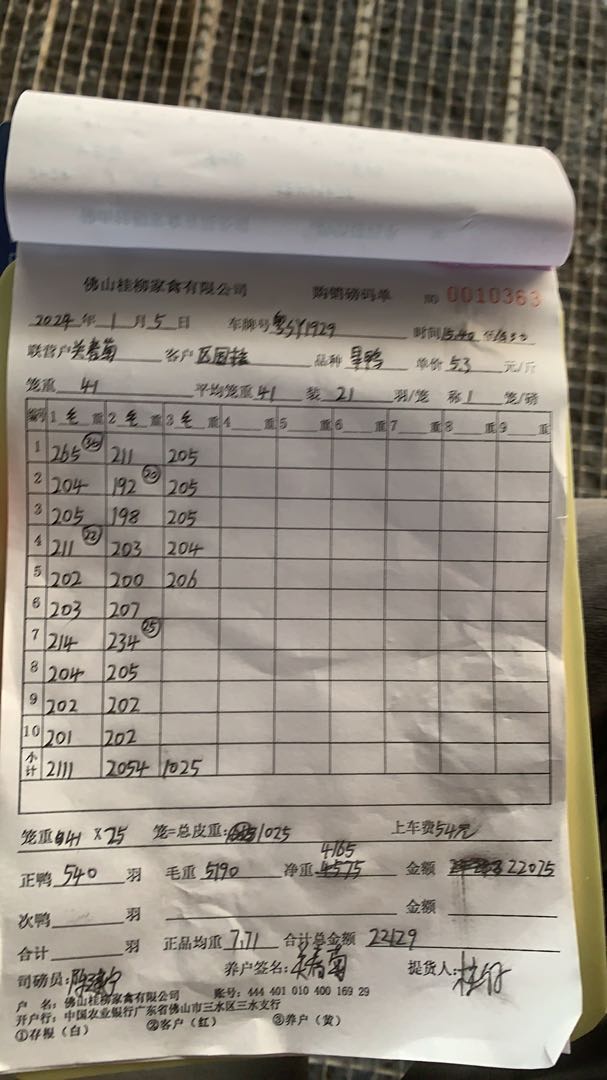 佛山桂柳家禽有限公司 购销磅码单 NO 0010363
2024年1月5日 车牌号粤SY1929 时间15:40
联营户 关春菊 客户 品种 旱鸭 单价 5.3 元/斤
笼重 41 平均笼重 41 装 21 羽/笼 称 1 笼/磅
编号 1 毛 重 2 毛 重 3 毛 重 4 重 5 重 6 重 7 重 8 重 9 重
1 265 211 205
2 204 192 20 205
3 205 198 205
4 211 22 203 204
5 202 200 206
6 203 207
7 214 234 25
8 204 205
9 202 202
10 201 202
小计 2111 2054 1025
笼重 41 × 25 笼=总皮重: 1025 上车费 54元
4165
正鸭 540 羽 毛重 5190 净重 4575 金额 22075
次鸭 羽 金额
合计 羽 正品均重 7.71 合计总金额 22129
司磅员: 养户签名: 关春菊 提货人:
户 名: 佛山桂柳家禽有限公司 账号: 444 401 010 400 169 29
开户行: 中国农业银行广东省佛山市三水区三水支行
①存根(白) ②客户(红) ③养户(黄)